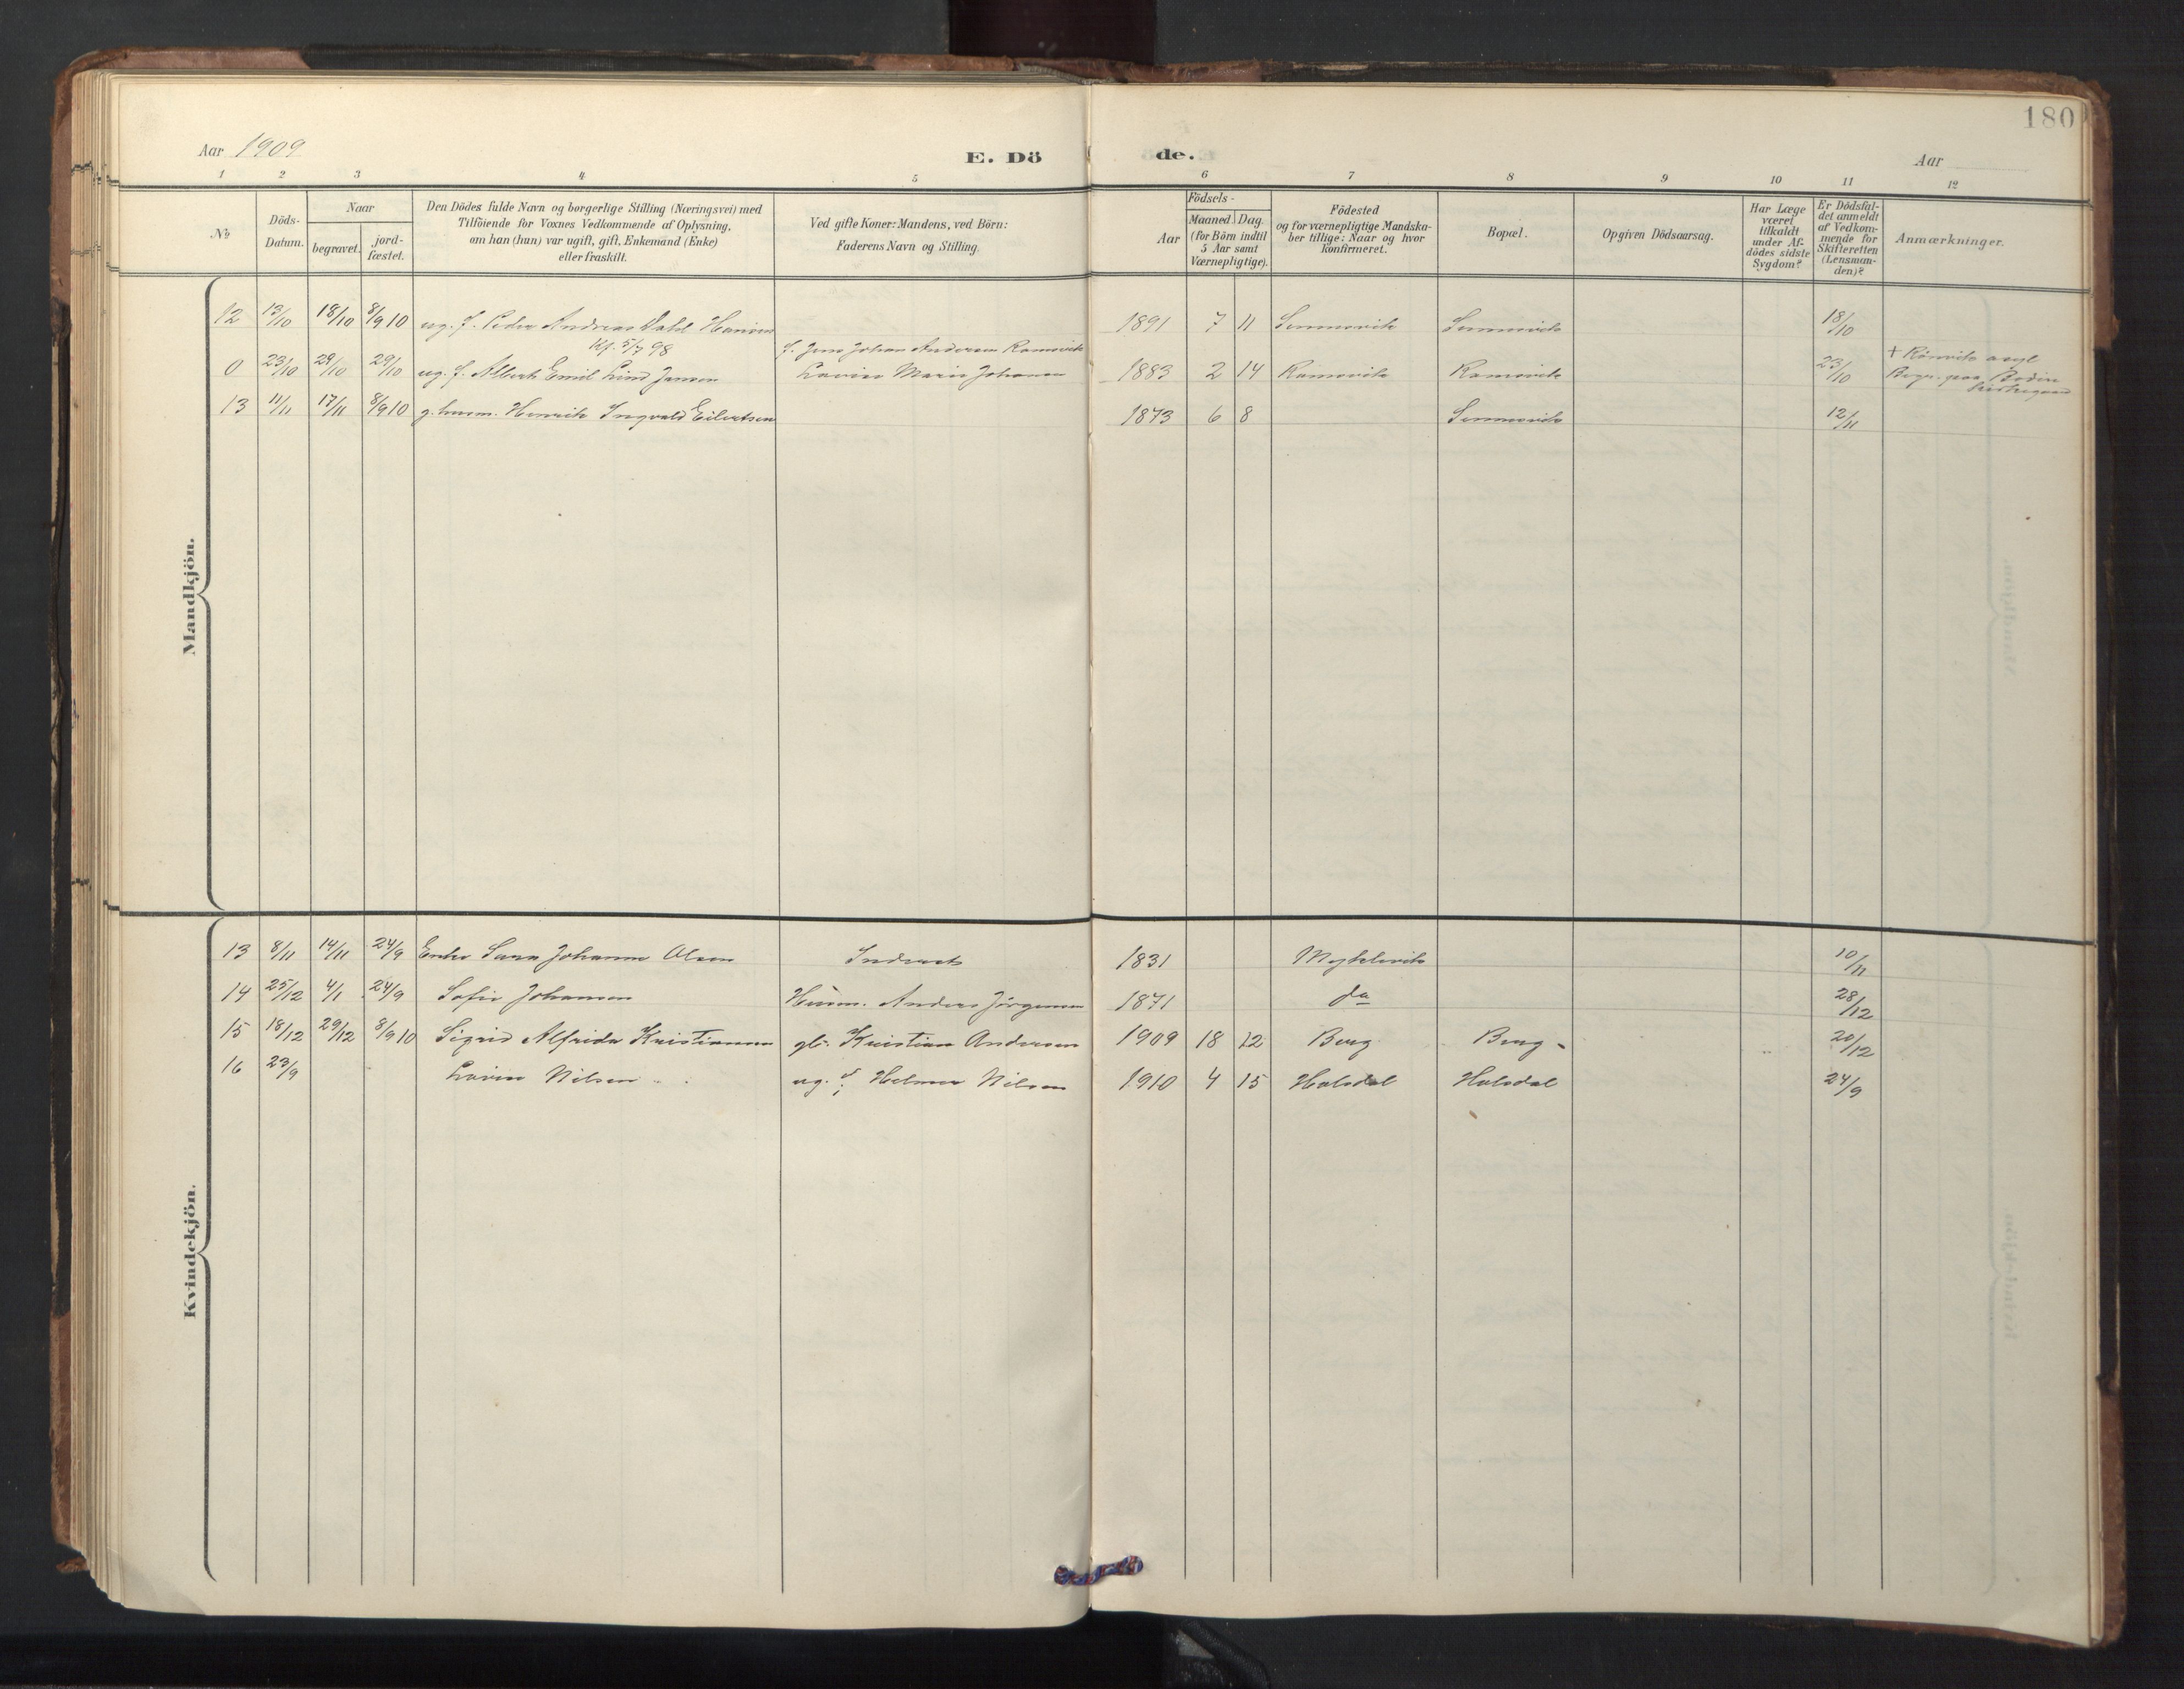 180
Aar 1909
E. Dö de.
Aar
1 2 3 4 5 6 7 8 9 10 11 12
№
Döds-Datum.
Naar
begravet.
jord-fæstet.
Den Dödes fulde Navn og borgerlige Stilling (Næringsvei) med
Tilföiende for Voxnes Vedkommende af Oplysning,
om han (hun) var ugift, gift, Enkemand (Enke)
eller fraskilt.
Ved gifte Koner: Mandens, ved Börn:
Faderens Navn og Stilling.
Födsels-
Aar
Maaned. Dag.
(for Börn indtil
5 Aar samt
Værnepligtige).
Födested
og for værnepligtige Mandska-
ber tillige: Naar og hvor
konfirmeret.
Bopæl.
Opgiven Dödsaarsag.
Har Læge
været
tilkaldt
under Af-
dödes sidste
Sygdom?
Er Dödsfal-
det anmeldt
af Vedkom-
mende for
Skifteretten
(Lensman-
den)?
Anmærkninger.
Mandkjön.
12 13/10 18/10 8/9 10 ug. f. Peder Andreas Dahl Hansen 1891 7 11 18/10
Kf. 5/7 98
f. Jens Johan Andersen
0 23/10 29/10 29/10 ug. f. Albert Emil Lind Jensen Lovise Marie Johansen 1883 2 14 23/10
+ Rönvik asyl
Begr. paa Bodin
kirkegaard
13 11/11 17/11 8/9 10 g. husm. Henrik Ingvald Eilertsen 1873 6 8 12/11
Kvindekjön.
13 8/11 14/11 24/9 Enke Sara Johanna Olsen 1831 10/11
14 25/12 4/1 24/9 Sofie Johansen Husm. Anders Jörgensen 1871 do 28/12
15 18/12 29/12 8/9 10 Sigrid Alfrida Kristiansen Kristian Andersen 1909 18 12 Berg Berg - 20/12
16 23/9 Lovise Nilsen ug. f. Helmer Nilsen 1910 4 15 Halsdal Halsdal 24/9